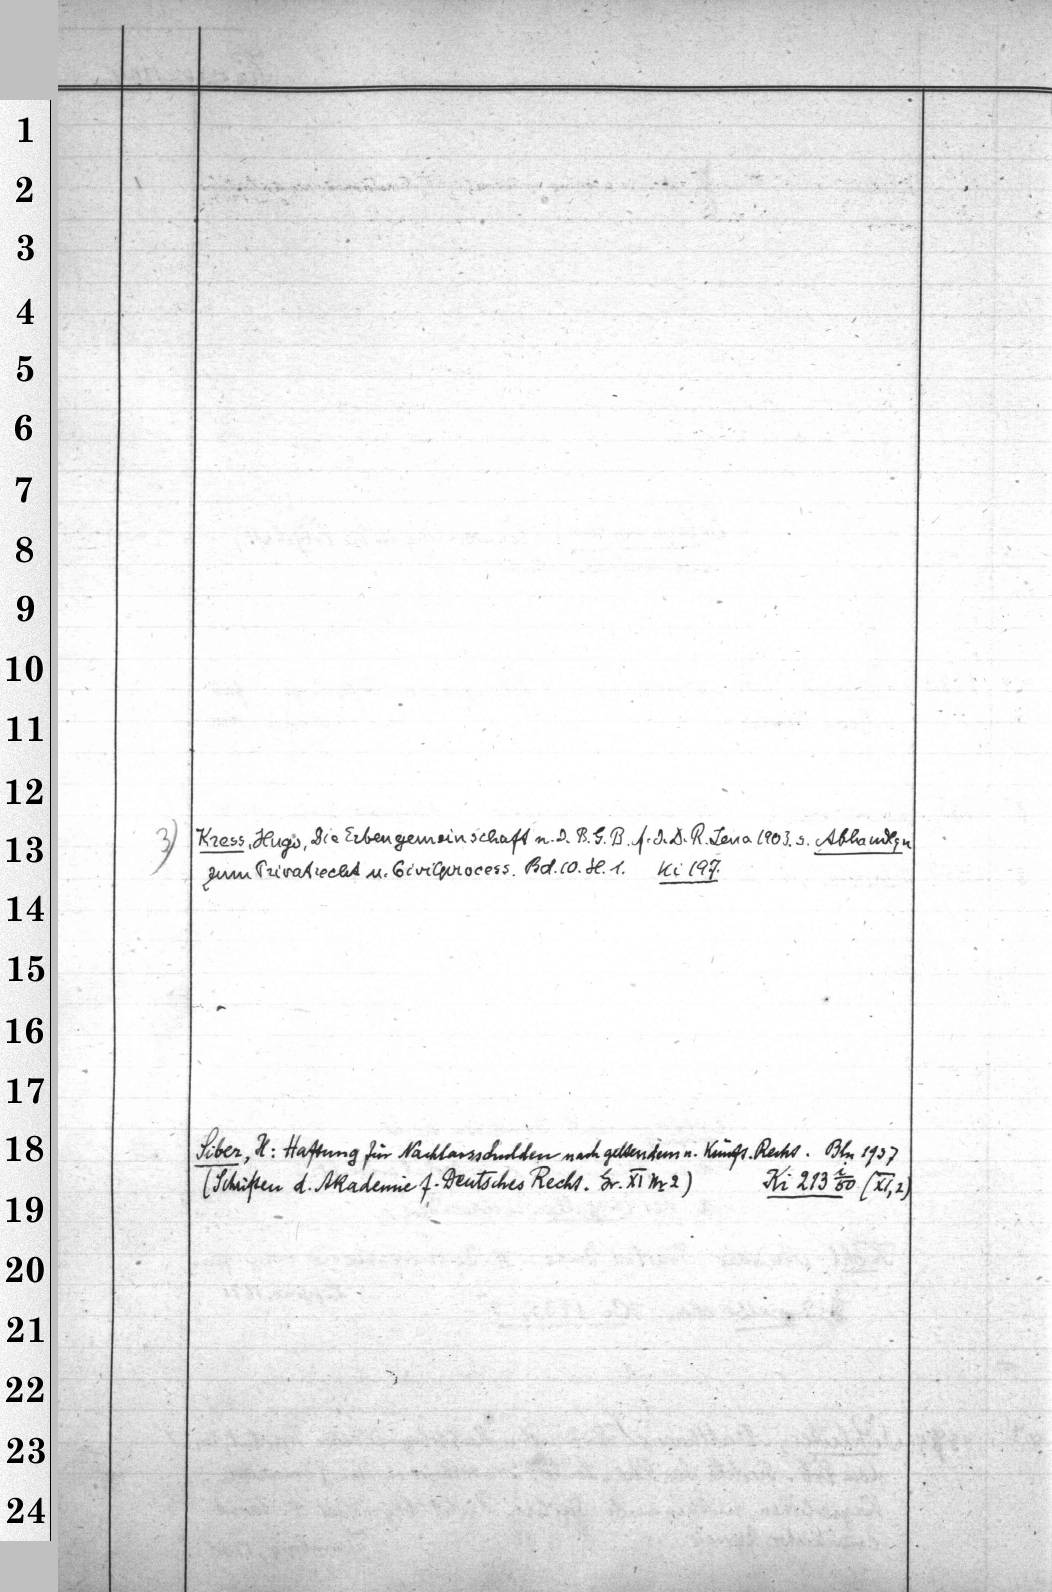 1
2
3
4
5
6
7
8
9
10
11
12
3) Kress, Hugo, Die Erbengemeinschaft n. d. B.G.B. f. d. D. R. Jena 1903. s. Abhandlgn
13
zum Privatrecht u. Civilprocess. Bd. 10. H. 1. Ki 197.
14
15
16
17
18
Siber, H: Haftung für Nachlassschulden nach geltendem u. künft. Recht. Bln 1937
(Schriften d. Akademie f. Deutsches Recht. Gr. XI Nr 2) Ki 213 (XI,2)
19
20
21
22
23
24